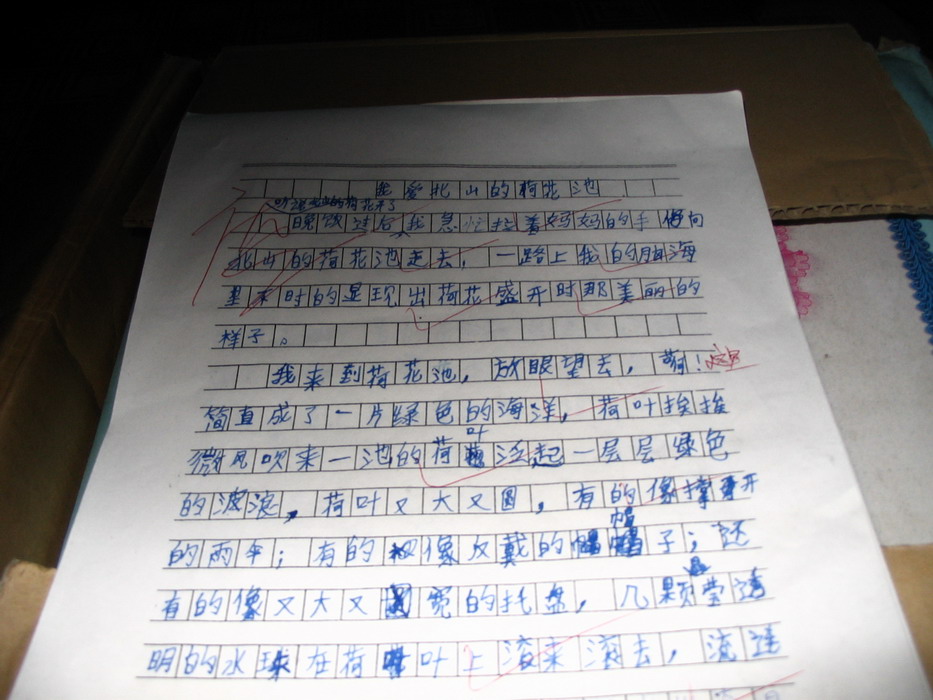 我爱北山的荷花池
听说北山的荷花开了
晚饭过后,我急忙拉着妈妈的手便向
北山的荷花池走去,一路上我的脑海
里不时的显现出荷花盛开时那美丽的
样子。
我来到荷花池,放眼望去,啊!这
简直成了一片绿色的海洋,荷叶挨挨
叶
微风吹来一池的荷泛起一层层绿色
的波浪,荷叶又大又圆,有的像撑开
帽
的雨伞;有的像反戴的子;还
有的像又大又宽的托盘,几颗莹透
明的水珠在荷叶上滚来滚去,流连